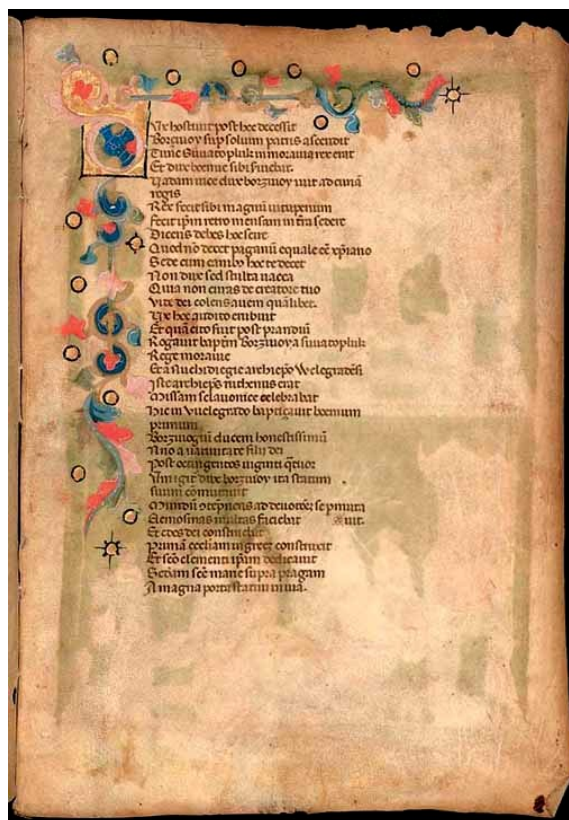 Dux hostiuit post hec decessit
Borziuoy sup solium patris ascendit
Tunc Suuatopluk in morauia rex erat
Et dux boemie sibi
Quadam vice dux borziuoy iuit ad curiā
regis
Rex fecit sibi magnū uituperium
fecit ip̄m retro mensam in tr̄a sedere
Dicens debes hoc scire
Quod nō decet paganū equale cē xp̄iano
Sede cum canibꝫ hoc te decet
Non dux sed stulta uacca
Quia non curas de creatore tuo
pro deo colens auem quālibet.
Dux hoc audito erubuit
Et quā cito fuit post prandiū
Rogauit baptm̄ Borziuoy a suuatopluk
Rege morauie
Et a archiepo Welegradēsi
Iste archiep̄s ruthenus erat
Missam sclauonice celebrabat
Hic in Wuelegrado baptiçauit boemum
primum
Borziuogiū ducem honestissimū
Anno a natiuitate filii dei
Post octingentos uiginti q̄tuor
igit dux borziuoy ita statum
suum comutauit
Mundū ad se
Elemosinas multas faciebat uit.
Et edes dei construebat
Primā eccliam construxit
Et sc̄o clementi ip̄m dedicauit
Scdam sc̄e marie supra pragam
A magna porta in uia.